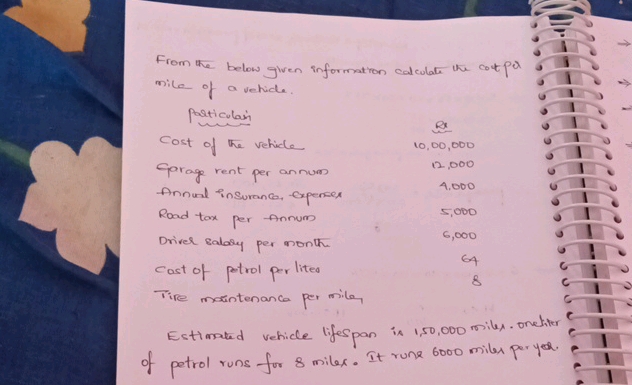 From the below given information calculate the cost per
mile of a vehicle.
Particulars Rs
Cost of the vehicle 10,00,000
Garage rent per annum 12,000
Annual insurance expenses 4,000
Road tax per Annum 5,000
Driver salary per month 6,000
Cost of petrol per liter 64
Tire maintenance per mile, 8
Estimated vehicle lifespan is 1,50,000 miles. one liter
of petrol runs for 8 miles. It runs 6000 miles per year.